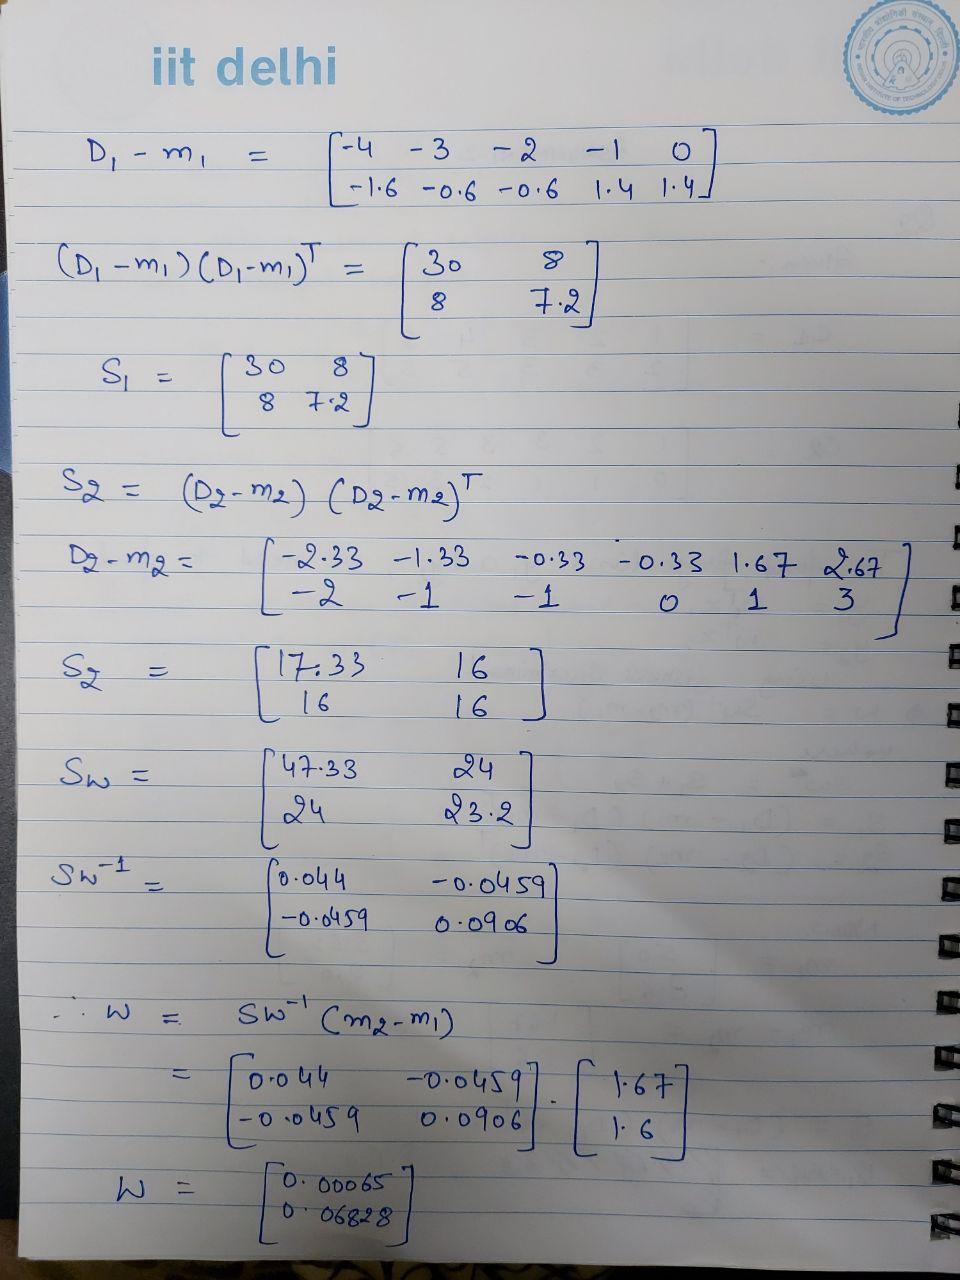 iit delhi
D₁ - m₁ = [-4 -3 -2 -1 0
-1.6 -0.6 -0.6 1.4 1.4]
(D₁ - m₁) (D₁ - m₁)ᵀ = [30 8
8 7.2]
S₁ = [30 8
8 7.2]
S₂ = (D₂ - m₂) (D₂ - m₂)ᵀ
D₂ - m₂ = [-2.33 -1.33 -0.33 -0.33 1.67 2.67
-2 -1 -1 0 1 3]
S₂ = [17.33 16
16 16]
Sw = [47.33 24
24 23.2]
Sw⁻¹ = [0.044 -0.0459
-0.0459 0.0906]
∴ W = Sw⁻¹ (m₂ - m₁)
= [0.044 -0.0459
-0.0459 0.0906] . [1.67
1.6]
W = [0.00065
0.06828]